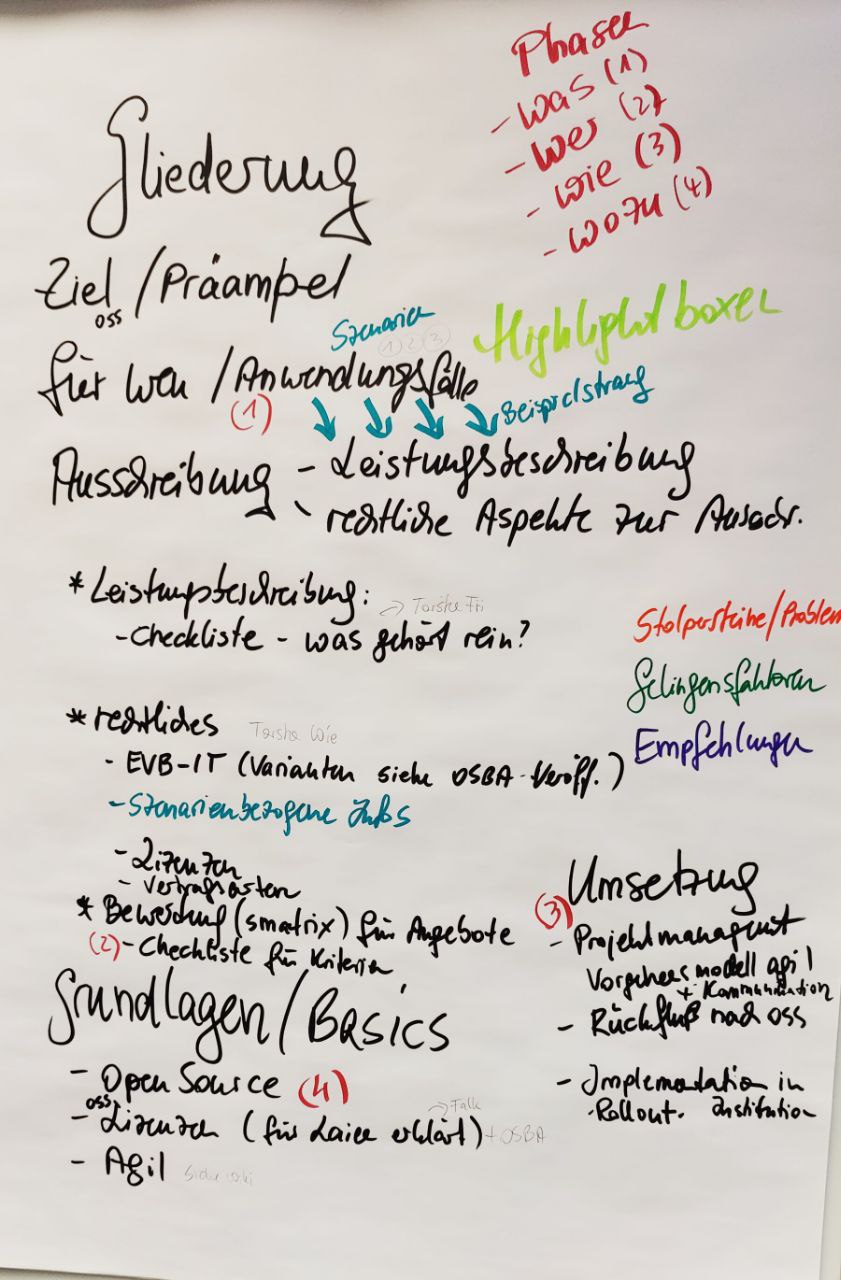 Phasen
- was (1)
- wer (2)
- wie (3)
- wozu (4)
Gliederung
Ziel / Präambel
OSS
Szenarien
(1) 2 (3)
Highlightboxen
für wen / Anwendungsfälle
(1)
Beispielstrang
Ausschreibung - Leistungsbeschreibung
- rechtliche Aspekte zur Ausschr.
* Leistungsbeschreibung:
- Checkliste - was gehört rein?
Stolpersteine/Problem
Gelingensfaktoren
Empfehlungen
* rechtliches
- EVB-IT (Varianten siehe OSBA-Veröff.)
- Szenarienbezogene Infos
- Lizenzen
- Vertragsarten
* Bewertung(smatrix) für Angebote
(2) - Checkliste für Kriterien
Grundlagen/Basics
- Open Source (4)
- OSS Lizenzen (für Laien erklärt) + OSBA
- Agil siehe
Umsetzung
(3)
- Projektmanagement
Vorgehensmodell agil
+ Kommunikation
- Rückfluß nach OSS
- Implementation in
Rollout. Institution